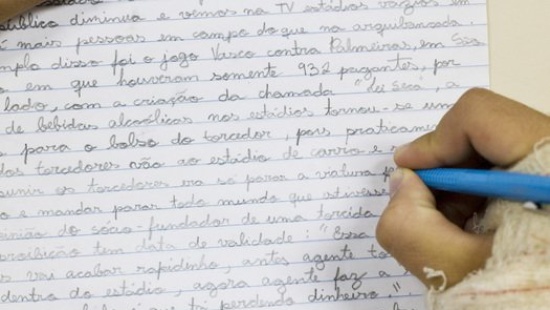 público diminua e vemos na TV estádios vazios em
mais pessoas em campo do que na arquibancada.
disso foi o jogo Vasco contra Palmeiras, em São
em que houveram somente 932 pagantes, por
lado, com a criação da chamada "Lei Seca", a
de bebidas alcoólicas nos estádios tornou-se um
para o bolso do torcedor, pois
dos torcedores vão ao estádio de carro e
os torcedores era só parar a viatura
e mandar parar todo mundo que
do sócio-fundador de uma torcida
proibição tem data de validade: "Essa
vai acabar rapidinho, antes agente
dentro do estádio, agora agente faz a
perdendo dinheiro."